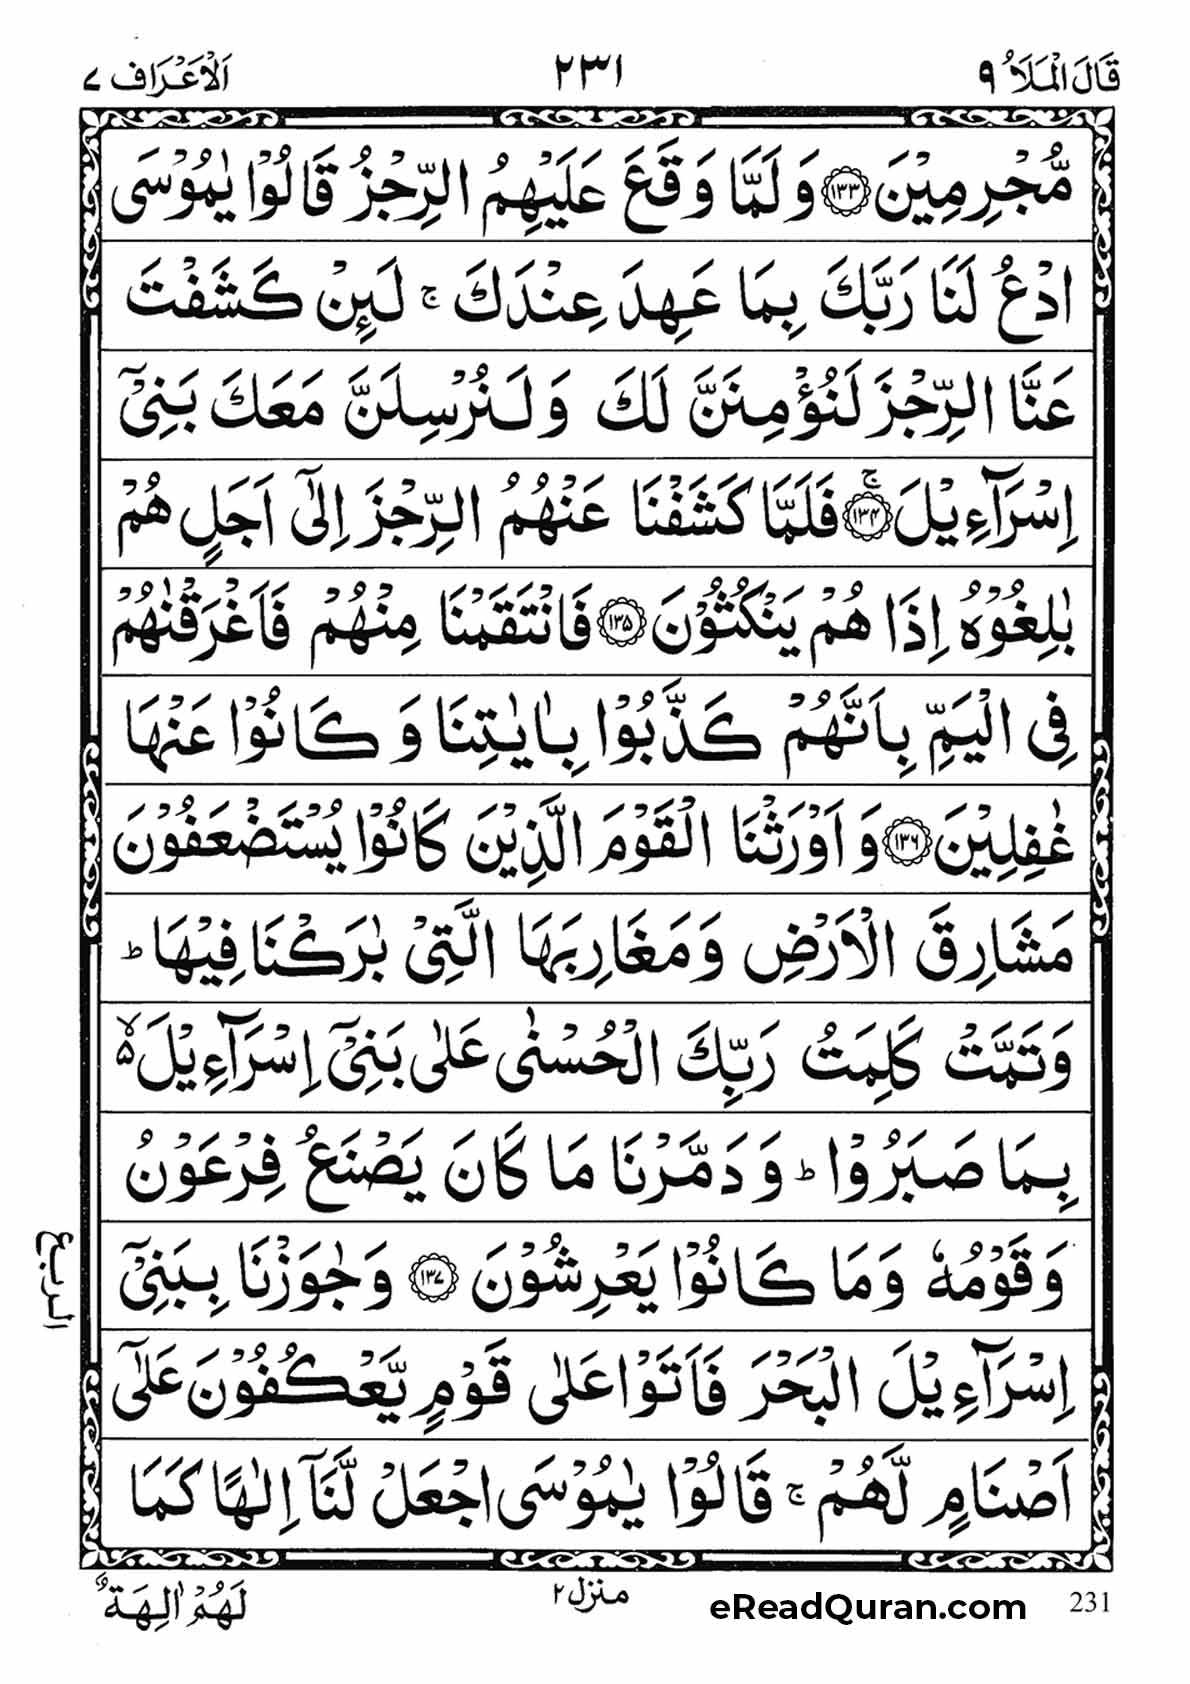 قَالَ الْمَلَاُ ۹ ۲۳۱ اَلْاَعْرَاف ۷
مُّجْرِمِيْنَ ﴿۱۳۳﴾ وَلَمَّا وَقَعَ عَلَيْهِمُ الرِّجْزُ قَالُوْا يٰمُوْسَى
ادْعُ لَنَا رَبَّكَ بِمَا عَهِدَ عِنْدَكَ ۚ لَىِٕنْ كَشَفْتَ
عَنَّا الرِّجْزَ لَنُؤْمِنَنَّ لَكَ وَلَنُرْسِلَنَّ مَعَكَ بَنِیْۤ
اِسْرَآءِيْلَ ﴿۱۳۴﴾ۚ فَلَمَّا كَشَفْنَا عَنْهُمُ الرِّجْزَ اِلٰۤى اَجَلٍ هُمْ
بٰلِغُوْهُ اِذَا هُمْ يَنْكُثُوْنَ ﴿۱۳۵﴾ فَانْتَقَمْنَا مِنْهُمْ فَاَغْرَقْنٰهُمْ
فِى الْيَمِّ بِاَنَّهُمْ كَذَّبُوْا بِاٰيٰتِنَا وَكَانُوْا عَنْهَا
غٰفِلِيْنَ ﴿۱۳۶﴾ وَاَوْرَثْنَا الْقَوْمَ الَّذِيْنَ كَانُوْا يُسْتَضْعَفُوْنَ
مَشَارِقَ الْاَرْضِ وَمَغَارِبَهَا الَّتِىْ بٰرَكْنَا فِيْهَا ؕ
وَتَمَّتْ كَلِمَتُ رَبِّكَ الْحُسْنٰى عَلٰى بَنِىْۤ اِسْرَآءِيْلَ ۙ۵
بِمَا صَبَرُوْا ؕ وَدَمَّرْنَا مَا كَانَ يَصْنَعُ فِرْعَوْنُ
وَقَوْمُهٗ وَمَا كَانُوْا يَعْرِشُوْنَ ﴿۱۳۷﴾ وَجٰوَزْنَا بِبَنِىْۤ
الربع
اِسْرَآءِيْلَ الْبَحْرَ فَاَتَوْا عَلٰى قَوْمٍ يَّعْكُفُوْنَ عَلٰۤى
اَصْنَامٍ لَّهُمْ ۚ قَالُوْا يٰمُوْسَى اجْعَلْ لَّنَاۤ اِلٰهًا كَمَا
لَهُمْ اٰلِهَةٌ منزل ۲ eReadQuran.com 231